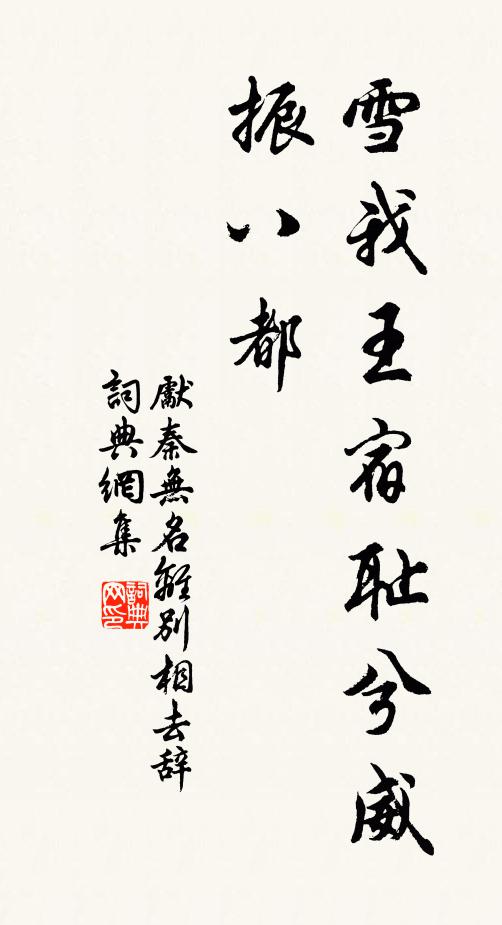 雪我王宿耻兮威
振八都
獻秦無名離別相去辞
詞典網集
詞典网印